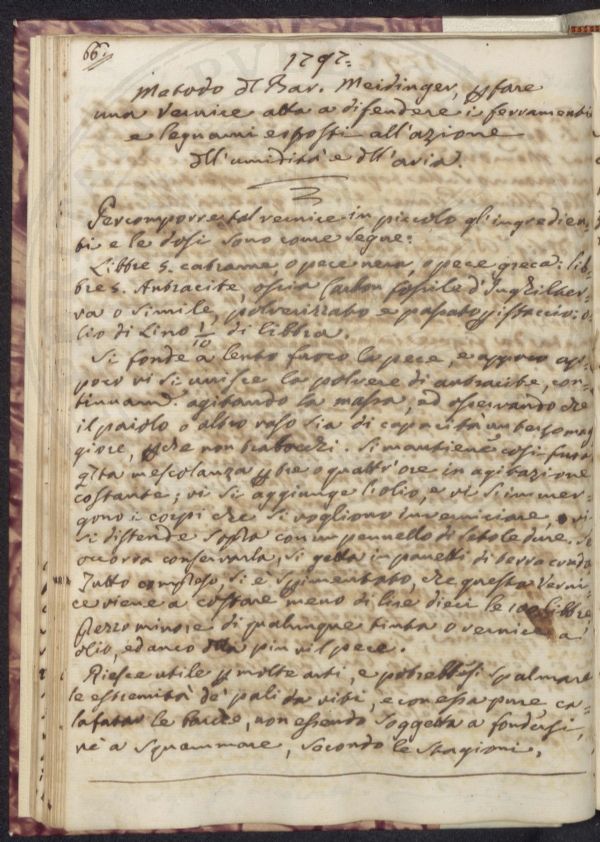 66.
1797.
Metodo dl Bar. Meidinger, p fare
una vernice atta a difendere i ferramenti
e legnami esposti all'azione
dll'umidità e dll'aria.
Per comporre tal vernice in piccolo gl'ingredien,
ti e le dosi sono come segue:
Libbre 5. catrame, o pece nera, o pece greca: lib,
bre 5. Antracite, ossia Carbon fossile d'Inghilter,
ra o simile, polverizzato e passato p istaccio: o,
lio di Lino 1/10 di libbra.
Si fonde a lento fuoco la pece, e appoco ap,
poco vi si unisce la polvere di antracite, con,
tinuamd. agitando la massa, ed osservando che
il paiolo o altro vaso sia di capacità un terzo mag,
giore, p che non trabocchi. Si mantiene così fusa
qsta mescolanza p tre o quattr'ore in agitazione
costante; vi si aggiunge l'olio, e vi s'immer,
gono i corpi che si vogliono inverniciare, o vi
si distende sopra con un pennello di setole dure. Se
occorra conservarla, si getta in panetti di terra cruda.
Tutto compreso, si è sperimentato, che questa verni,
ce viene a costare meno di lire dieci le 100 libbre
Prezzo minore di qualunque tinta o vernice a
olio, ed anco dlla più vil pece.
Riesce utile p molte arti, e potrebbesi spalmare
le estremità de' pali da viti, e con essa pure ca,
lafatar le barche, non essendo soggetta a fondersi,
nè a squammare, secondo le stagioni.